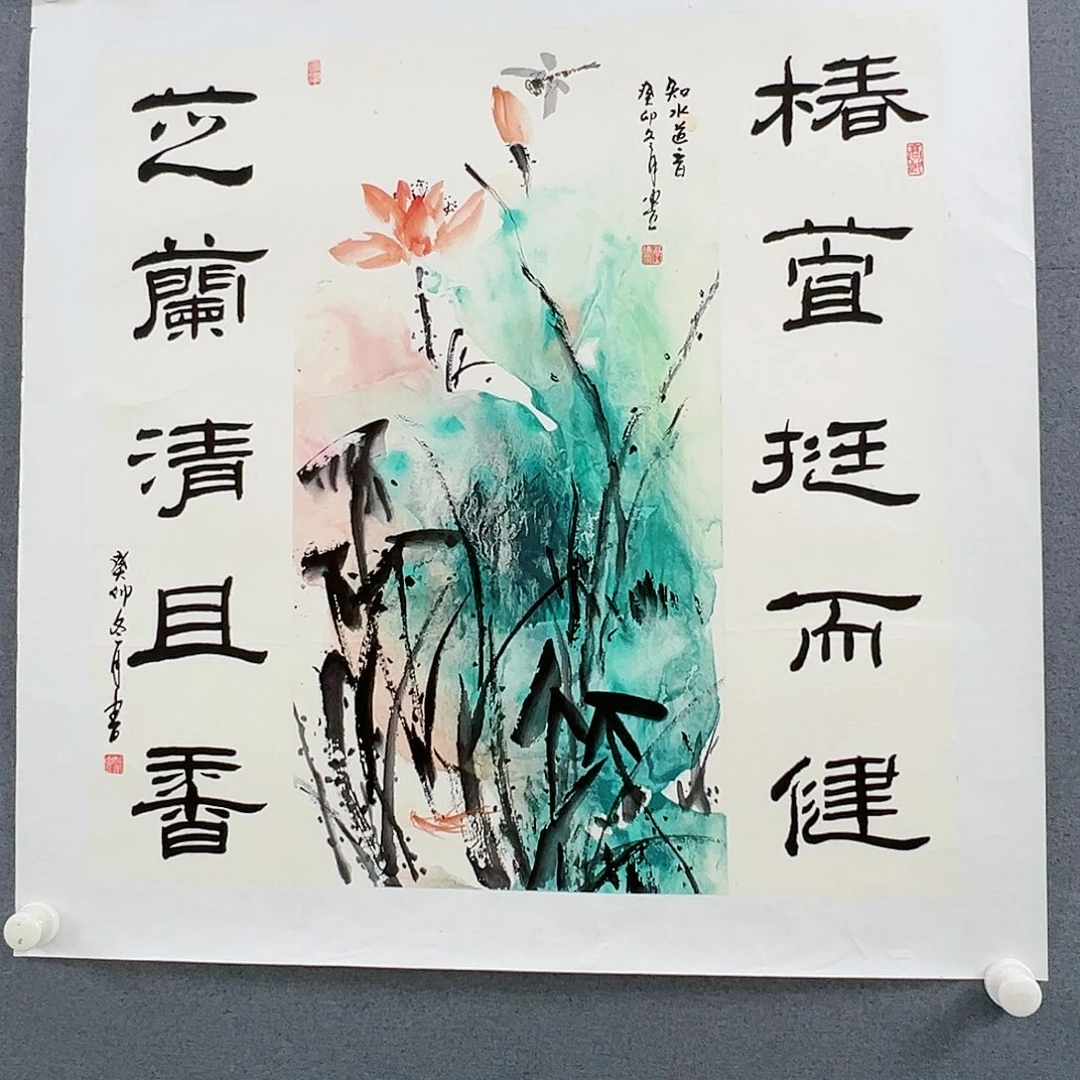 椿萱挺而健
知水遊音
癸卯冬月書
芝蘭清且香
癸卯冬月書